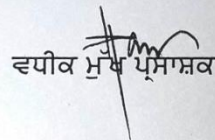 ਵਧੀਕ ਮੁੱਖ ਪ੍ਰਸਾਸ਼ਕ